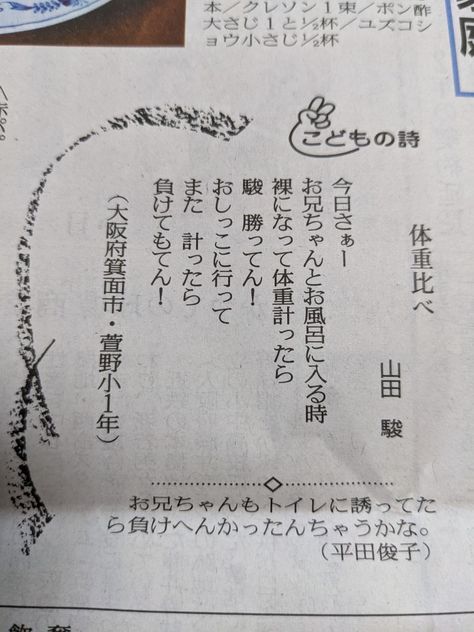 本／クレソン１束／ポン酢
大さじ１と½杯／ユズコシ
ョウ小さじ½杯
こどもの詩
体重比べ
山田　駿
今日さぁー
お兄ちゃんとお風呂に入る時
裸になって体重計ったら
駿　勝ってん！
おしっこに行って
また　計ったら
負けてもてん！
（大阪府箕面市・萱野小1年）
お兄ちゃんもトイレに誘ってた
ら負けへんかったんちゃうかな。
（平田俊子）